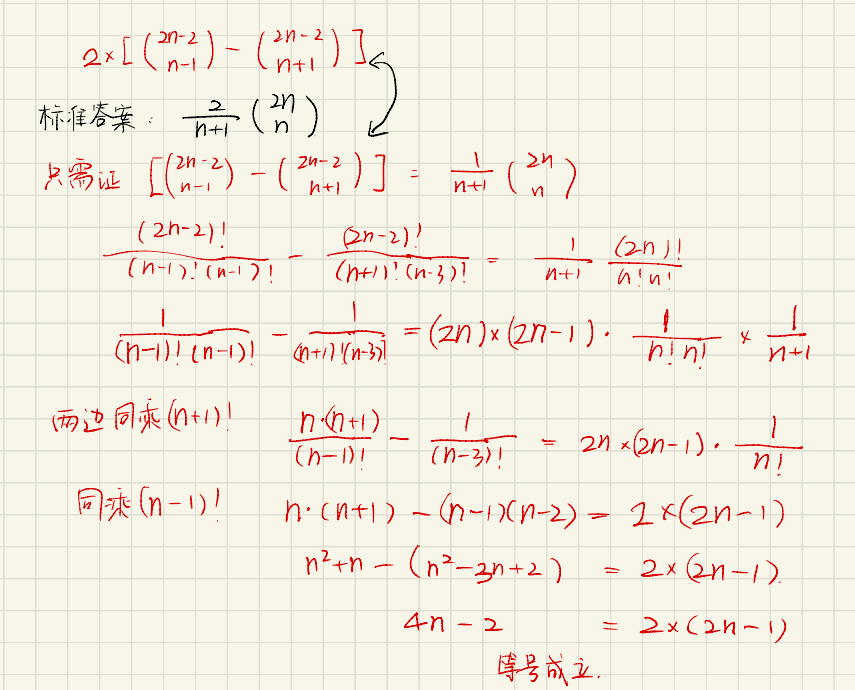 2×[(2n-2 n-1) - (2n-2 n+1)]
标准答案: 2/(n+1) (2n n)
只需证 [(2n-2 n-1) - (2n-2 n+1)] = 1/(n+1) (2n n)
(2n-2)!/((n-1)!(n-1)!) - (2n-2)!/((n+1)!(n-3)!) = 1/(n+1) (2n)!/(n!n!)
1/((n-1)!(n-1)!) - 1/((n+1)!(n-3)!) = (2n)×(2n-1)·1/(n!n!) × 1/(n+1)
两边同乘(n+1)! n·(n+1)/(n-1)! - 1/(n-3)! = 2n×(2n-1)·1/n!
同乘(n-1)! n·(n+1) - (n-1)(n-2) = 2×(2n-1)
n²+n - (n²-3n+2) = 2×(2n-1).
4n-2 = 2×(2n-1)
等号成立.